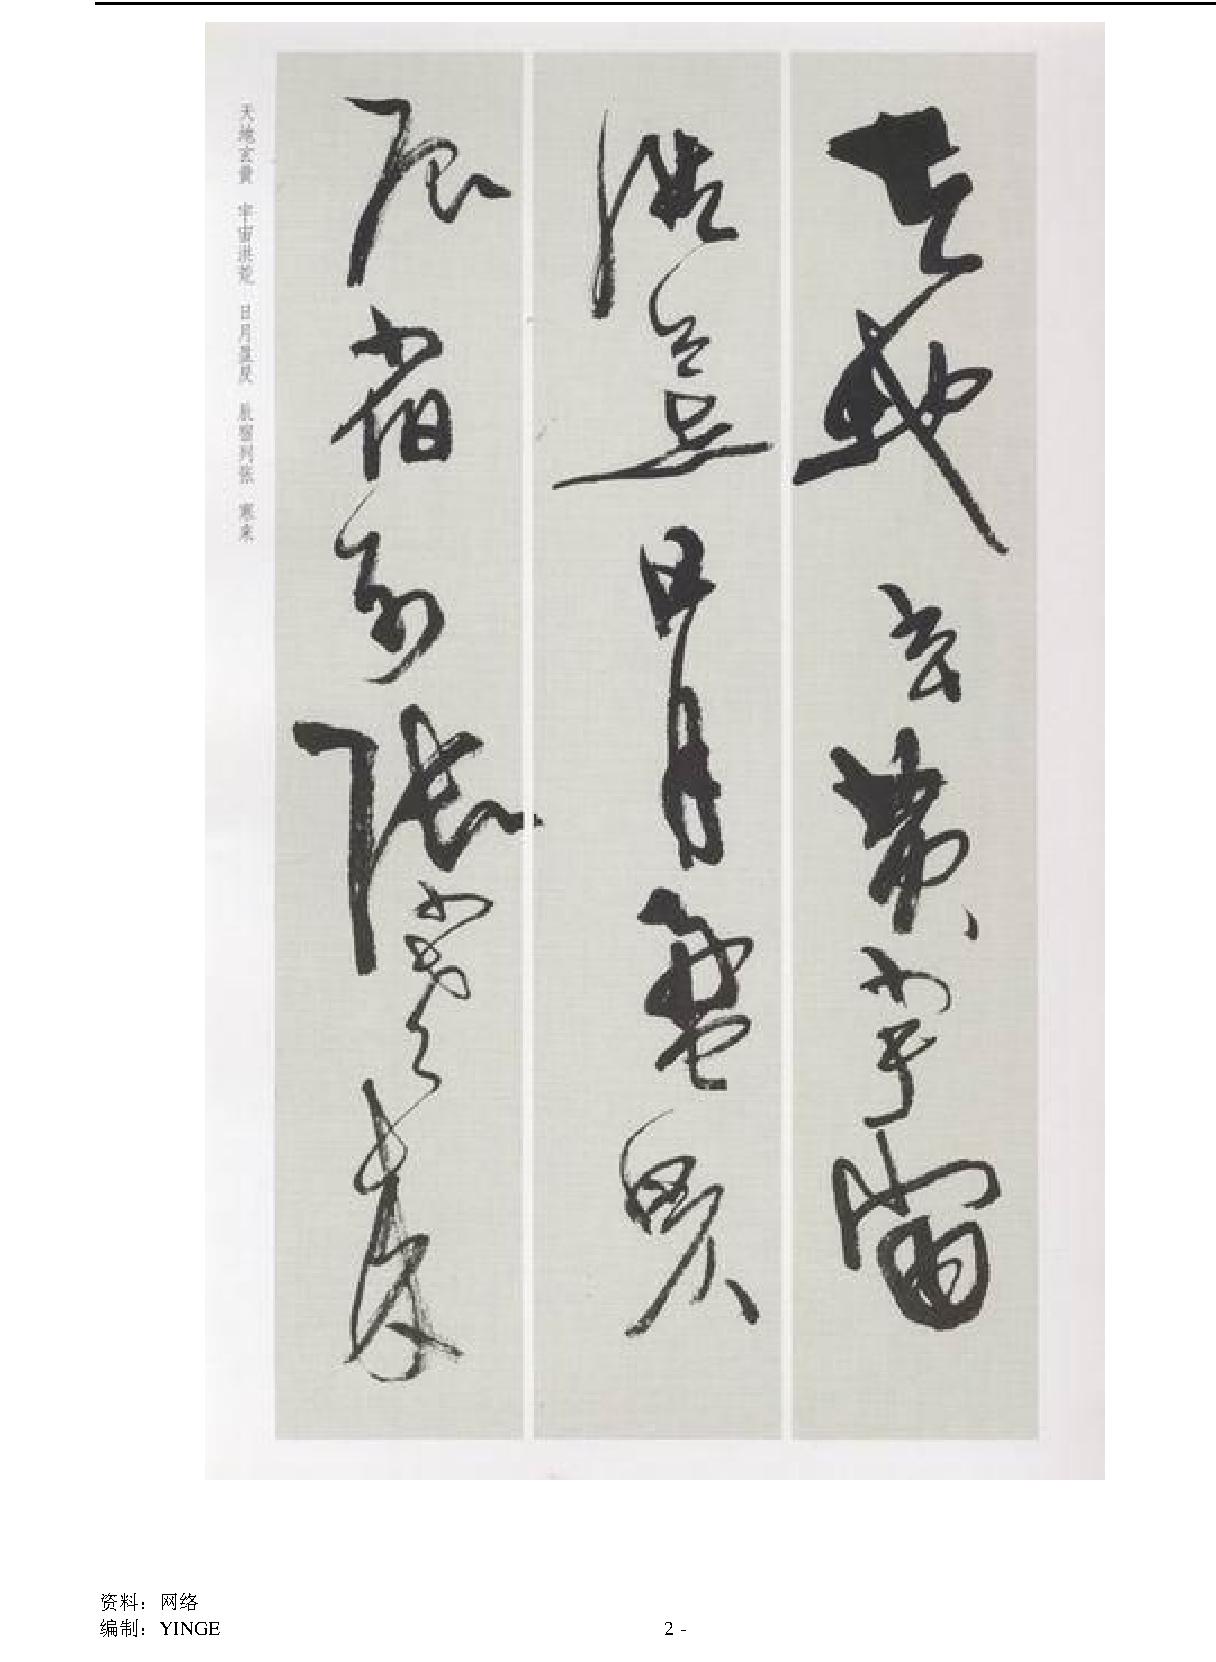 天地玄黄宇宙
洪荒日月盈昃
辰宿列张寒来
天地玄黄　宇宙洪荒　日月盈昃　辰宿列张　寒来
资料：网络
编制：YINGE
2 -